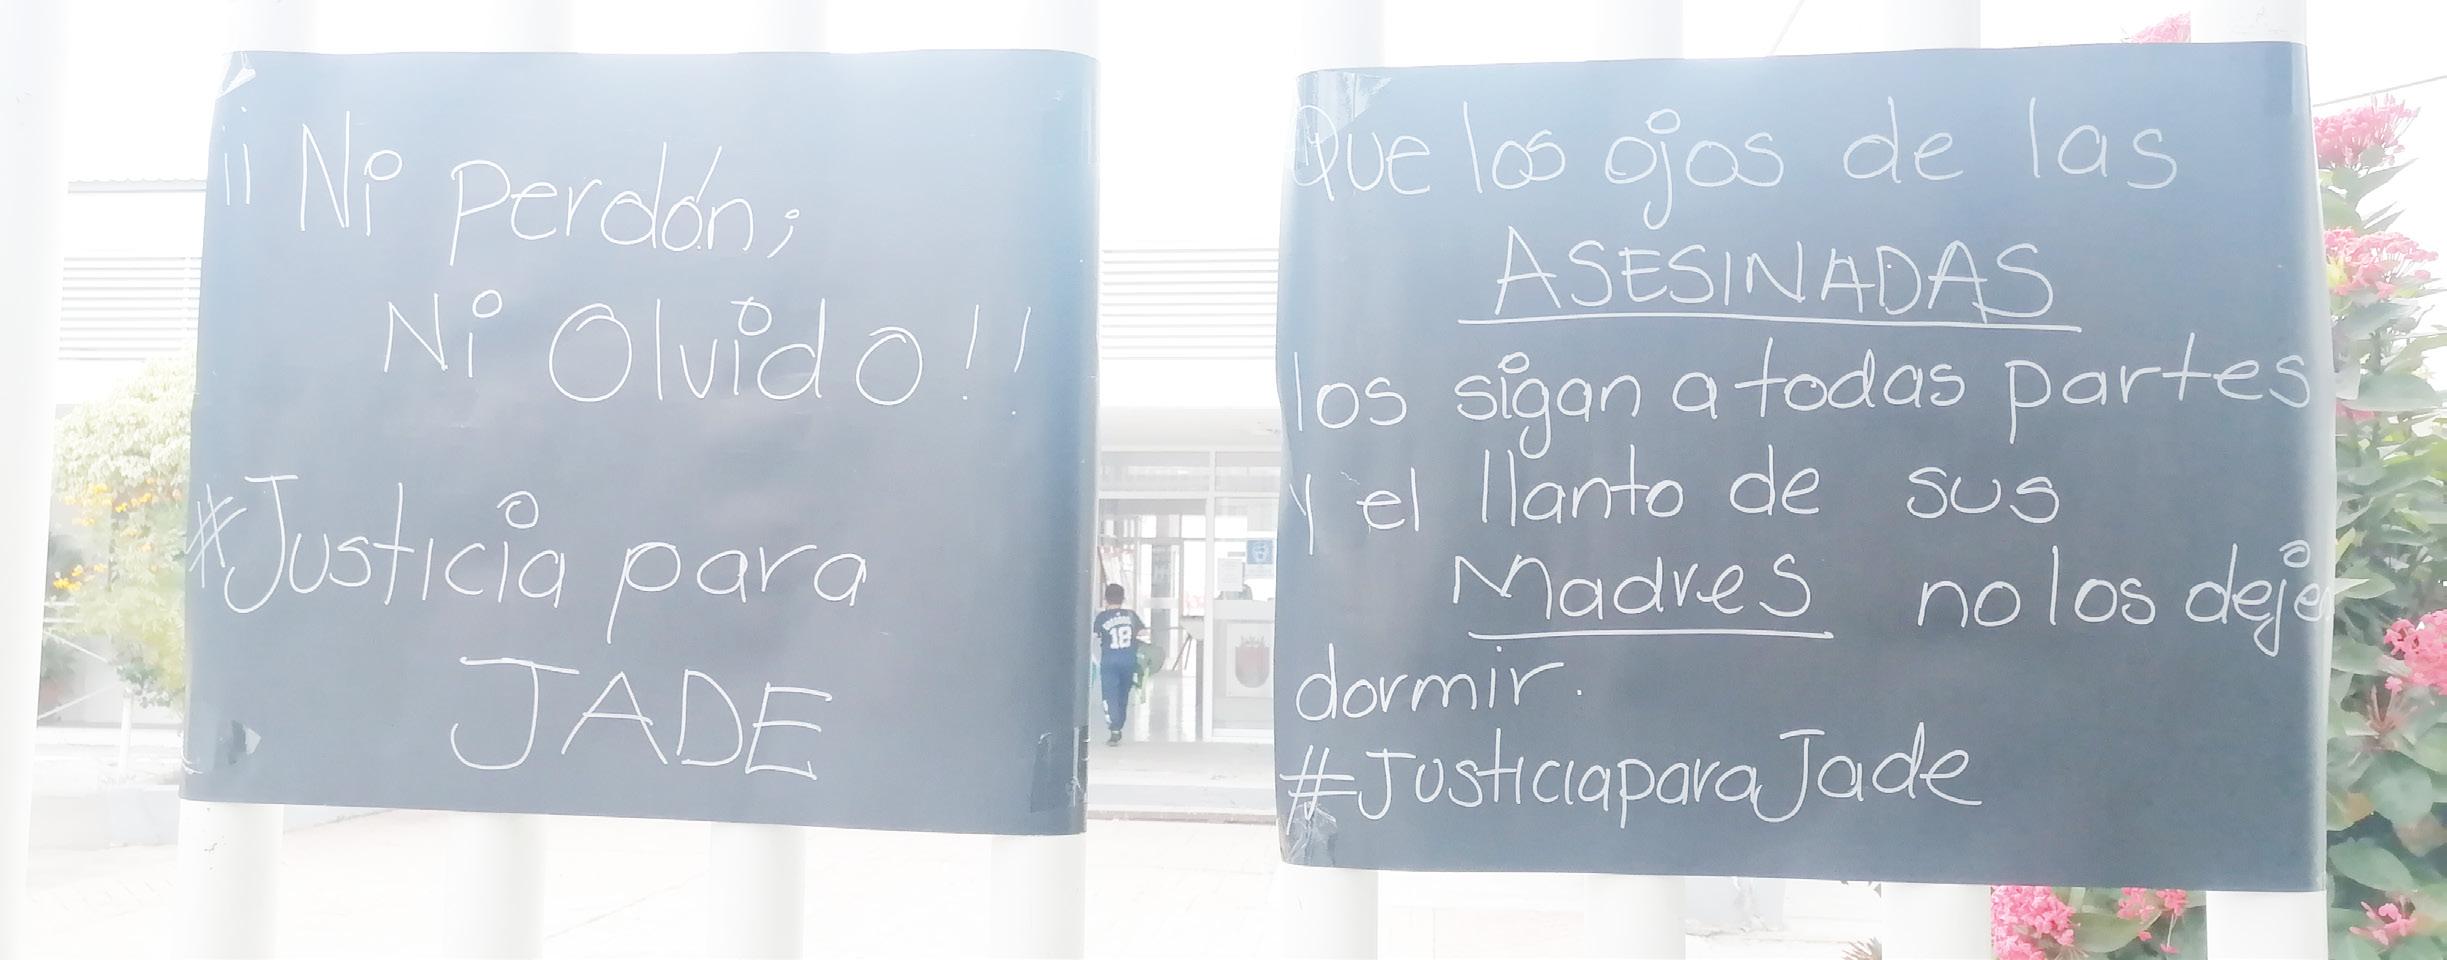 ¡¡Ni Perdón;
Ni Olvido!!
#Justicia para
JADE
Que los ojos de las
ASESINADAS
los sigan a todas partes
Y el llanto de sus
Madres no los deje
dormir.
#JusticiaparaJade
18